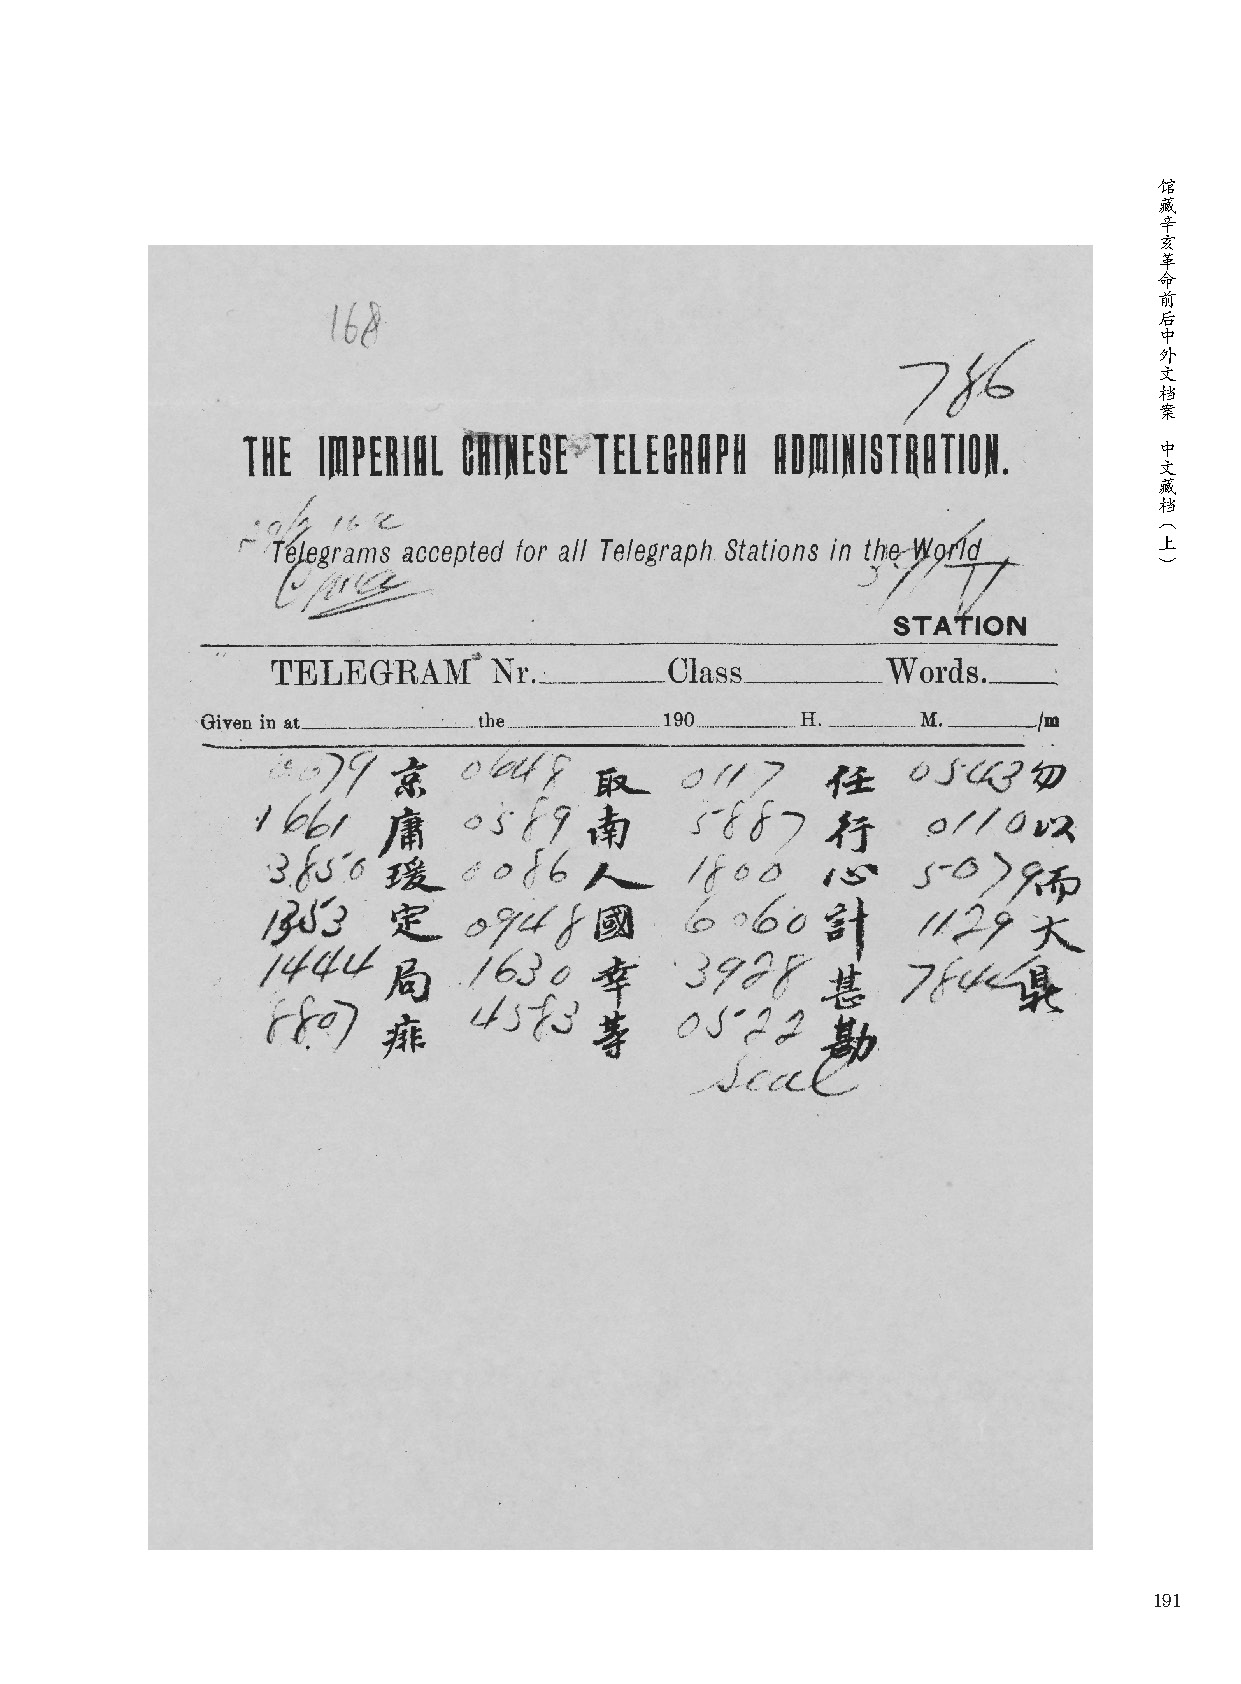 馆藏辛亥革命前后中外文档案 中文藏档（上）
168
786
THE IMPERIAL CHINESE TELEGRAPH ADMINISTRATION.
Telegrams accepted for all Telegraph Stations in the World
STATION
TELEGRAM Nr. Class Words.
Given in at the 190 H. M. /m
0079 京 0648 取 0117 任 0543 勿
1661 庸 0589 南 5887 行 0110 以
3850 瑗 0086 人 1800 心 5079 而
1353 定 0948 國 6060 計 1129 大
1444 局 1630 幸 3928 甚 7844
8807 痱 4583 等 0522 勘
Seal
191